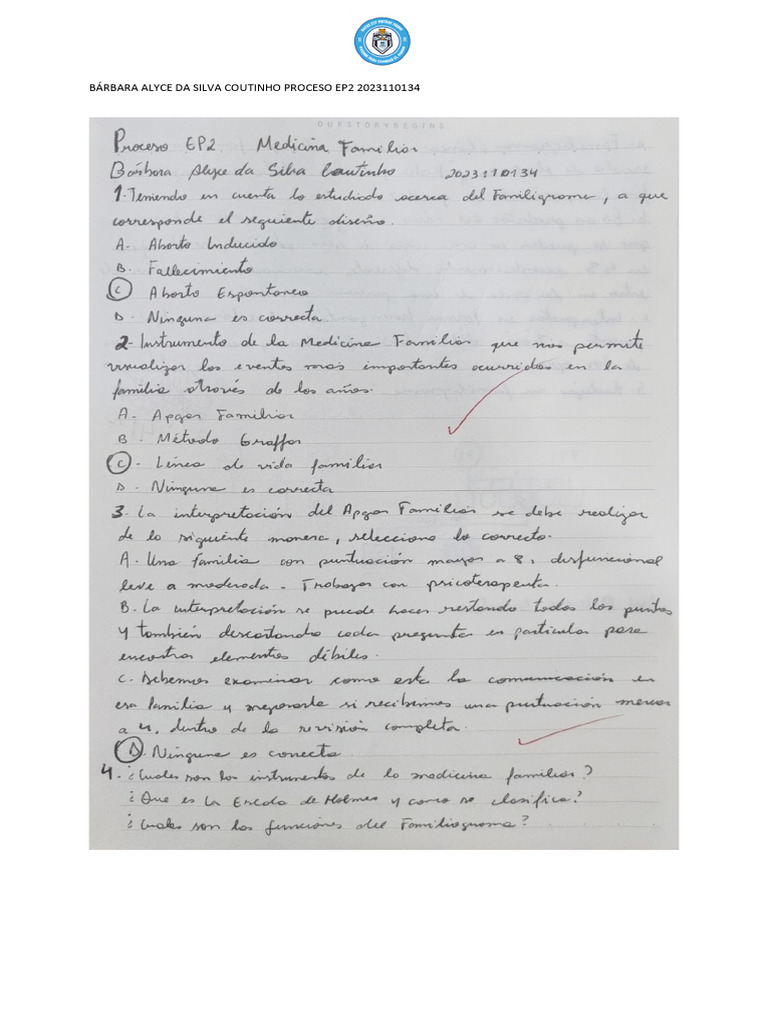 BÁRBARA ALYCE DA SILVA COUTINHO PROCESO EP2 2023110134
OURSTORYBEGINS
Proceso EP2 Medicina Familiar
Bárbara Alyce da Silva Coutinho 2023110134
1. Teniendo en cuenta lo estudiado acerca del Familigrama, a que
corresponde el seguiente diseño.
A. Aborto Inducido
B. Fallecimiento
C Aborto Espontaneo
D. Ninguna es correcta
2- Instrumento de la Medicina Familiar que nos permite
visualizar los eventos mas importantes ocurridos en la
familia através de los años.
A - Apgar Familiar
B - Método Graffar
C - Línea de vida familiar
D - Ninguna es correcta
3. La interpretación del Apgar Familiar se debe realizar
de la siguiente manera, selecciona lo correcto.
A. Una familia con puntuación mayor a 8: disfuncional
leve a moderada - Trabajar con psicoterapeuta.
B. La interpretación se puede hacer restando todos los puntos
y también descartando cada pregunta en particular para
encontrar elementos débiles.
C. Debemos examinar como esta la comunicación en
esa familia y mejorarla si recibimos una puntuación menor
a 4, dentro de la revisión completa.
D. Ninguna es correcta.
4. ¿Cuales son los instrumentos de la medicina familiar?
¿Que es la Escala de Holmes y como se clasifica?
¿Cuales son las funciones del Familiograma?